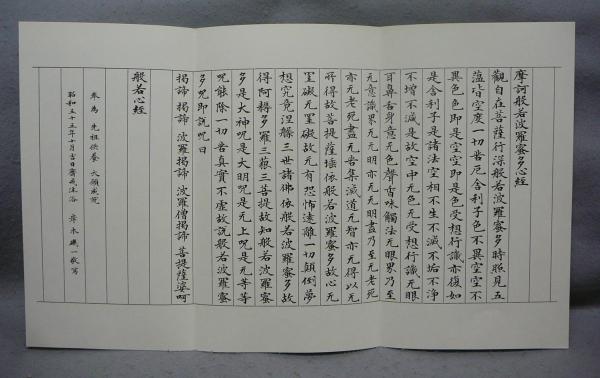 摩訶般若波羅蜜多心経
觀自在菩薩行深般若波羅蜜多時照見五
蘊皆空度一切苦厄舍利子色不異空空不
異色色即是空空即是色受想行識亦復如
是舎利子是諸法空相不生不滅不垢不浄
不增不減是故空中无色无受想行識无眼
耳鼻舌身意无色聲香味觸法无眼界乃至
无意識界无无明亦无无明盡乃至无老死
亦无老死盡无苦集滅道无智亦无得以无
所得故菩提薩埵依般若波羅蜜多故心无
罣礙无罣礙故无有恐怖遠離一切顛倒夢
想究竟涅槃三世諸佛依般若波羅蜜多故
得阿耨多羅三藐三菩提故知般若波羅蜜
多是大神呪是大明呪是无上呪是无等等
呪能除一切苦真實不虚故說般若波羅蜜
多呪即說呪曰
揭諦 揭諦 波羅揭諦 波羅僧揭諦 菩提薩婆呵
般若心経
奉為 先祖供養 大願成就
昭和五十三年十月吉日齋戒沐浴 一敬寫